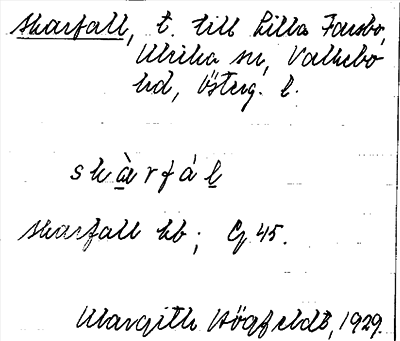 Skarfall, t. till Lilla Farsbo,
Ulrika sn, Valkebo
hd, Österg. l.
skàrfál
Skarfall hb; Cg 45.
Margith Högfeldt, 1929.